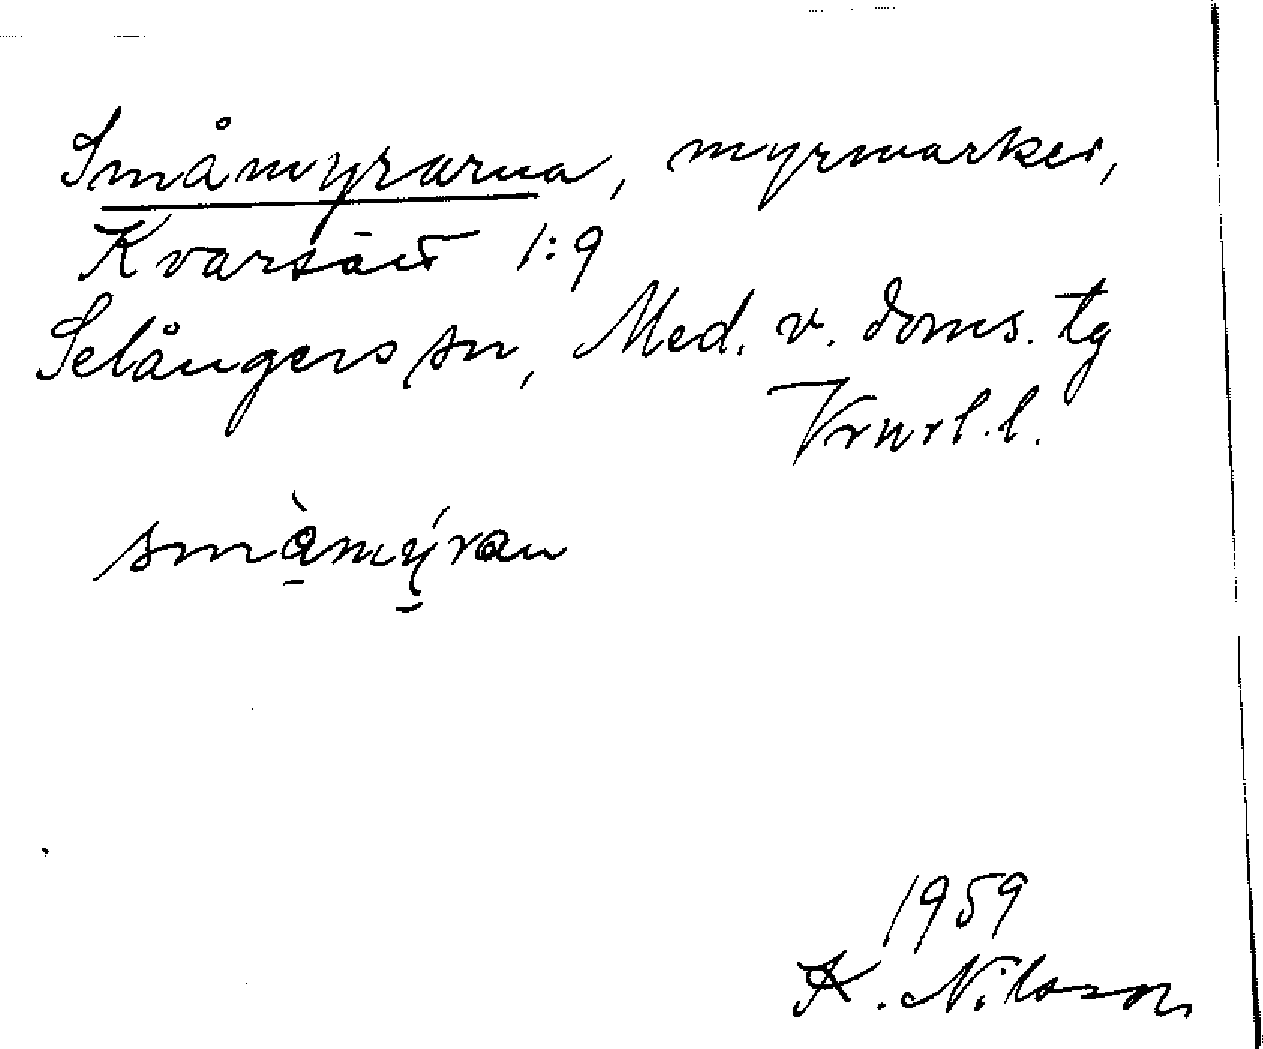 Småmyrarna, myrmarker,
Kvarsätt 1:9
Selångers sn, Med. v. doms. tg
Vrnrl. l.
småmýran
1959
K. Nilsson